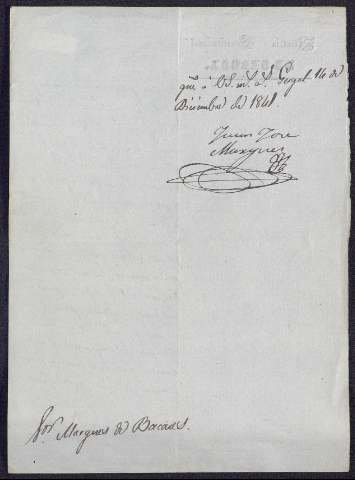 que à V. S. m. a.s Getget 14 de
Diciembre de 1841.
Juan Jose
Marques
Sor. Marques de Bacares.